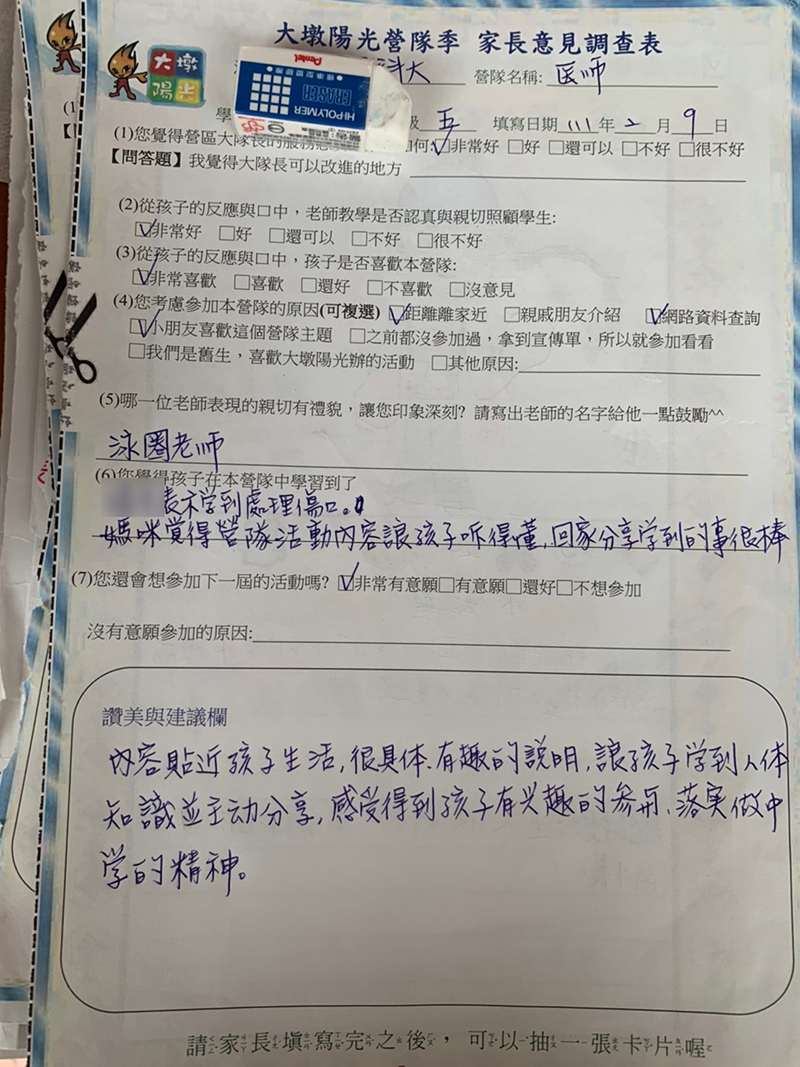 大墩陽光營隊季 家長意見調查表
大墩
陽光
科大 營隊名稱: 医师
Pentel
HI-POLYMER
ERASER
學 級 五 填寫日期 111 年 2 月 9 日
(1)您覺得營區大隊長的服務態 何:☑非常好 □好 □還可以 □不好 □很不好
【問答題】我覺得大隊長可以改進的地方
(2)從孩子的反應與口中，老師教學是否認真與親切照顧學生:
☑非常好 □好 □還可以 □不好 □很不好
(3)從孩子的反應與口中，孩子是否喜歡本營隊:
☑非常喜歡 □喜歡 □還好 □不喜歡 □沒意見
(4)您考慮參加本營隊的原因(可複選) ☑距離離家近 □親戚朋友介紹 ☑網路資料查詢
☑小朋友喜歡這個營隊主題 □之前都沒參加過，拿到宣傳單，所以就參加看看
□我們是舊生，喜歡大墩陽光辦的活動 □其他原因:
(5)哪一位老師表現的親切有禮貌，讓您印象深刻? 請寫出老師的名字給他一點鼓勵^^
泳圈老师
(6)您覺得孩子在本營隊中學習到了
表示学到處理傷口。
媽咪覚得營隊活動內容讓孩子听得懂,回家分享学到的事很棒
(7)您還會想參加下一屆的活動嗎? ☑非常有意願□有意願□還好□不想參加
沒有意願參加的原因:
讚美與建議欄
內容貼近孩子生活,很具体、有趣的説明,讓孩子学到人体
知識並主动分享,感受得到孩子有兴趣的参与、落实做中
学的精神。
請家長填寫完之後，可以抽一張卡片喔